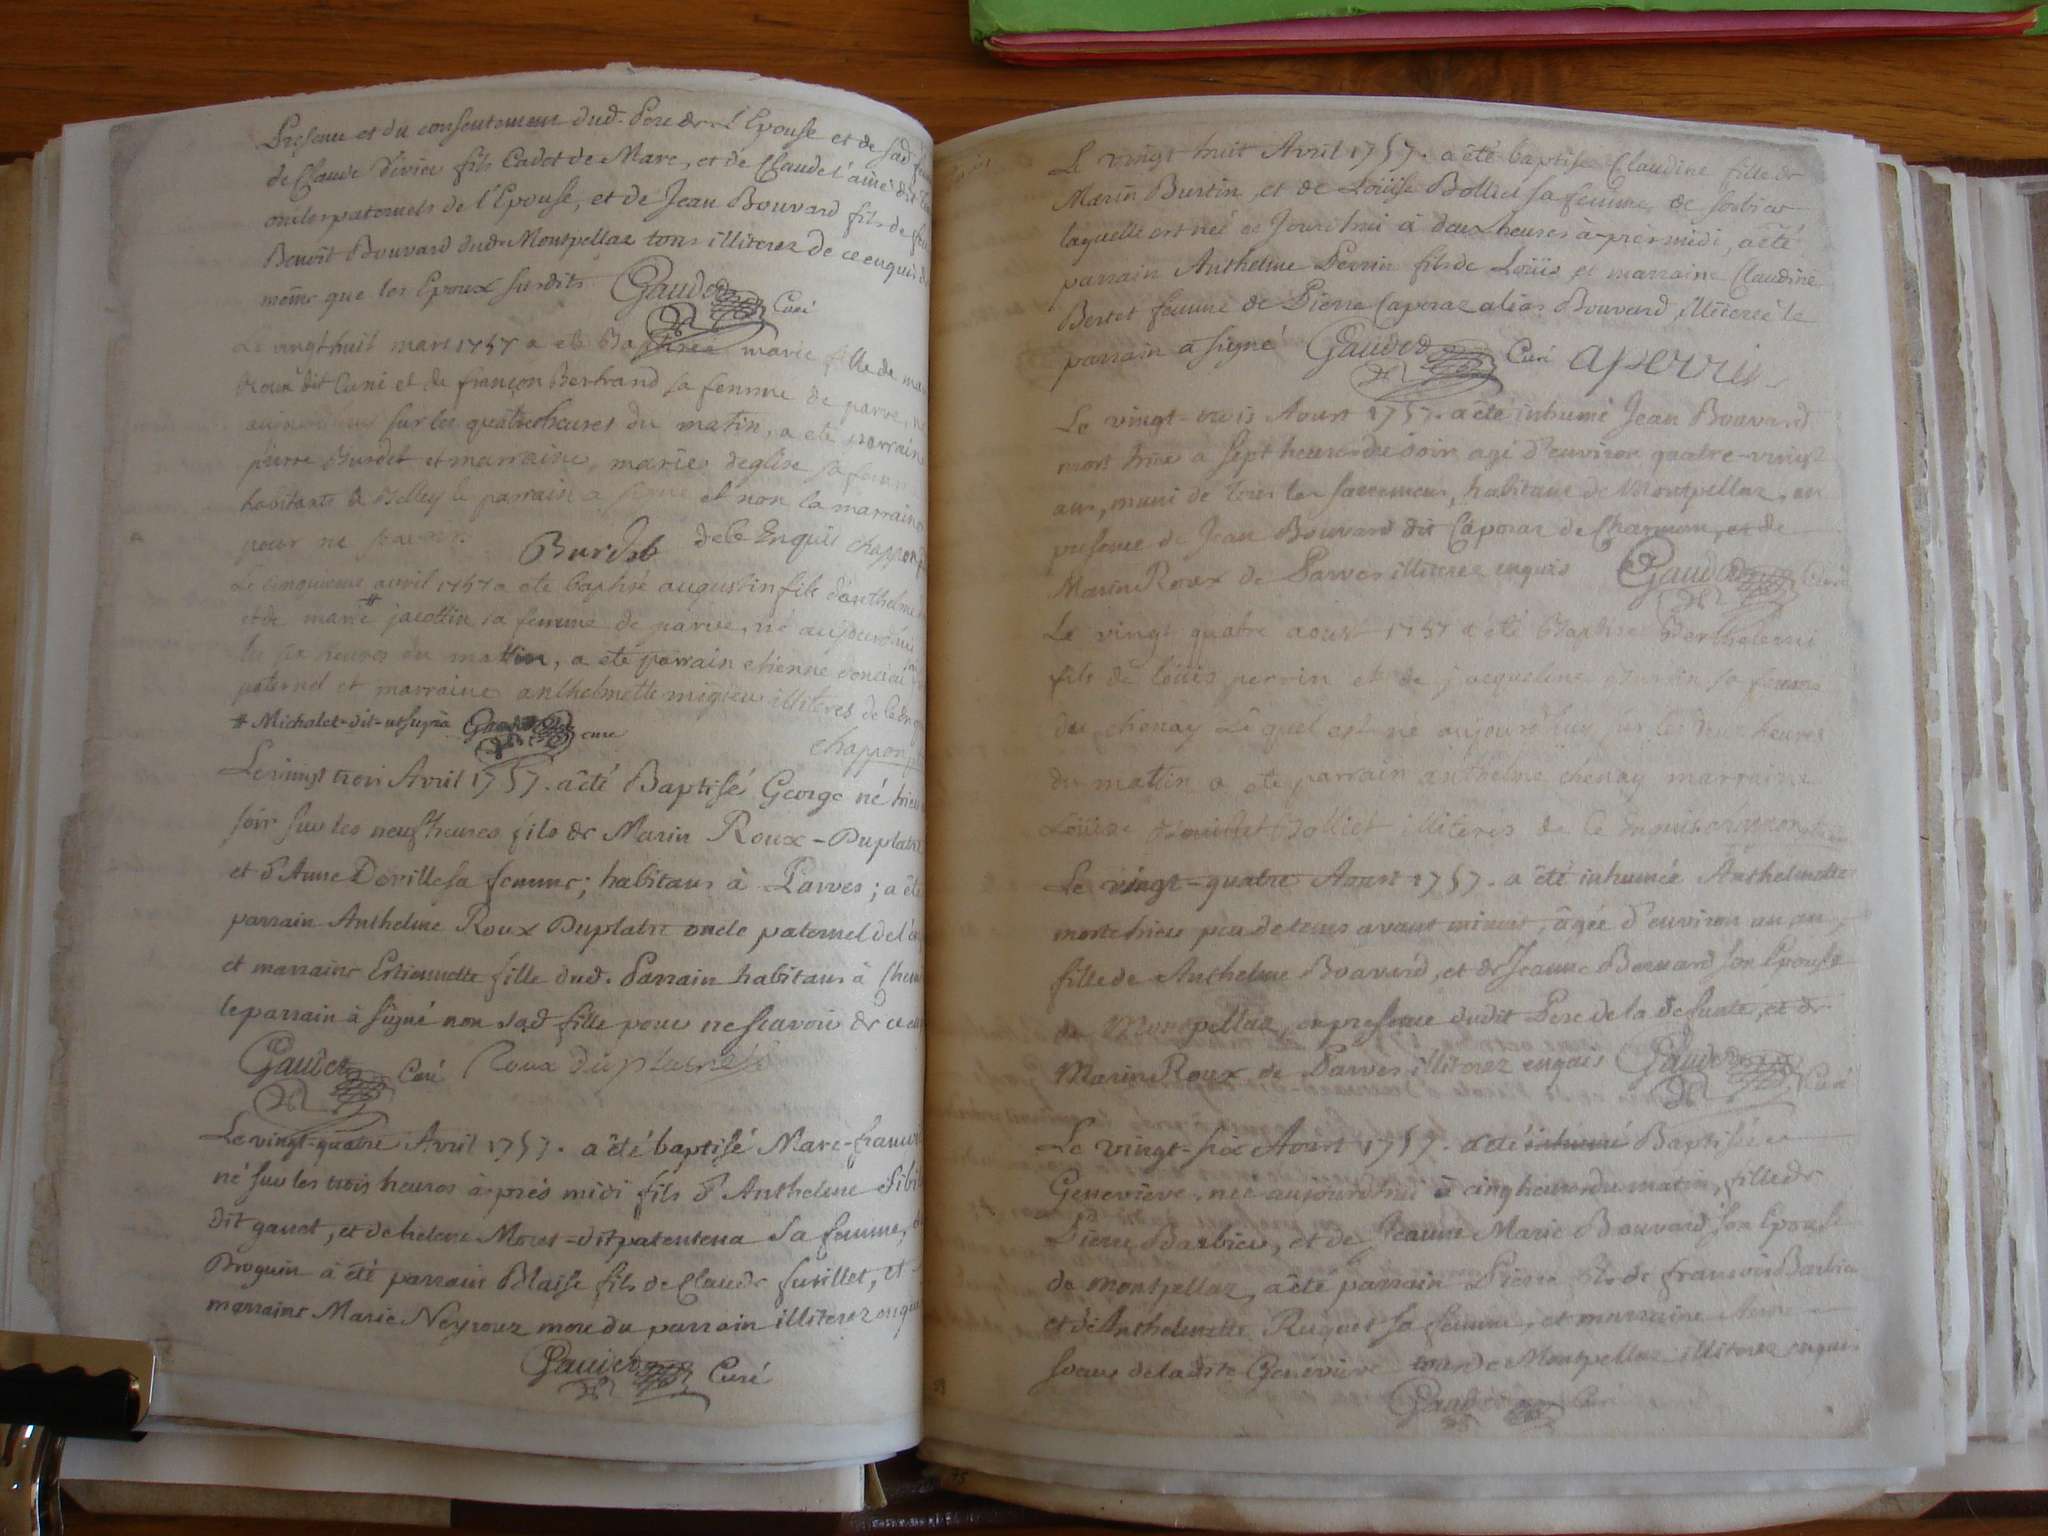 présence et du consentement dud. Pere de l'Epouse et de sad.
de Claude Divier fils Cadet de Marc, et de Claude l'ainé dit
oncles paternels de l'Epouse, et de Jean Bouvard fils de feu
Benoît Bouvard dud. Montpellaz tous illiterez de ce enquis de
même que les Epoux susdits Gaudet Curé
Le vingt huit mars 1757 a eté Baptisée marie fille de
Roux dit Cuni et de françon Bertrand sa femme de parve,
aujourdhui sur les quatre heures du matin, a eté parrain
pierre Burdet et marraine marie deglise sa femme
habitants de Belley le parrain a signé et non la marraine
pour ne scavoir Burdet de le Enquis chappon
Le cinquieme avril 1757 a eté baptisé augustin fils d'anthelme
et de marie # jacottin sa femme de parve, né aujourdhui
les six heures du mattin, a eté parrain etienne
paternel et marraine anthelmette migieu illiteres de le
# Michalet-dit-utsupra Gaudet curé
chappon
Le vingt trois Avril 1757. a été Baptisé George né hier
soir sur les neuf heures fils de Marin Roux-Duplatre
et d'Anne Deville sa femme; habitans à Parves; a été
parrain Anthelme Roux Duplatre oncle paternel de
et marraine Estiennette fille dud. Parrain habitans à
le parrain à signé non sad. fille pour ne scavoir de ce
Gaudet Curé Roux duplatre
Le vingt-quatre Avril 1757. a été baptisé Marc-françois
né sur les trois heures après midi fils d'Anthelme
dit ganet, et de helene Moret-dit patentena sa femme,
Brognin à été parrain Blaise fils de Claude furillet, et
marraine Marie Neyrouz mere du parrain illiterez enquis
Gaudet Curé
Le vingt huit Avril 1757. a été baptisée Claudine fille de
Marin Burtin, et de Loüise Bolliet sa femme, de sorbier
laquelle est née ce Jourd'hui à deux heures après midi, a été
parrain Anthelme Perrin fils de Loüis et marraine Claudine
Bertet femme de Pierre Caporaz alias Bouvard, illiterée le
parrain a signé Gaudet Curé aperrin
Le vingt-trois Aoust 1757. a été inhumé Jean Bouvard
mort hier à sept heures du soir agé d'environ quatre-vingt
ans, muni de tous les sacremens, habitant de Montpellaz, en
presence de Jean Bouvard dit Caporaz de Charmon, et de
Marin Roux de Parves illiterez enquis Gaudet Curé
Le vingt quatre aoust 1757 a été Baptisé Berthelemi
fils de loüis perrin et de jacqueline Burtin sa femme
du chenay Lequel est né aujourdhui sur les heures
du mattin a eté parrain anthelme chenay marraine
Loüise Bolliet illiteres de le Enquis chappon
Le vingt-quatre Aoust 1757. a été inhumée Anthelmette
morte hier peu de tems avant minuit, âgée d'environ un an,
fille de Anthelme Bouvard, et de Jeanne Bernard son Epouse
de Montpellaz, en presence dudit Pere de la defunte, et de
Marin Roux de Parves illiterez enquis Gaudet Curé
Le vingt-six Aoust 1757. a été inhumé Baptisée
Geneviève, née aujourd'hui à cinq heures du matin, fille de
Pierre Barbier, et de Jeanne Marie Bouvard son Epouse
de Montpellaz, a été parrain Pierre fils de françois Barbier
et de Anthelmette Ruguet sa femme, et marraine
soeur de ladite Geneviève tous de Montpellaz illiterez enquis
Gaudet Curé